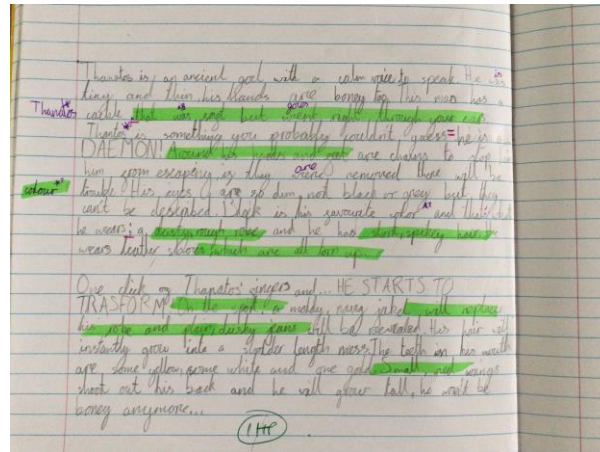 Thanatos is an ancient god with a calm voice to speak. He is
tiny and thin, his hands are boney too. This man has a
Thanatos cackle that was soft but went right through your ear.
Thantos is something you probably wouldn't guess = he is a
DAEMON! Around his and are chains to stop
him from escaping is they are removed there will be
colour trouble. His eyes are so dim, not black or grey but they
can't be described. black is his favourite color and that's what
he wears; a dusty, rough robe and he has short, spikey hair. He
wears leather shoes which are all torn up...
One click of Thanatos' fingers and... HE STARTS TO
TRASFORM! On the spot, a navy will replace
his robe and plain, dusky jeans will be revealed. His hair will
instantly grow into a length mess. The teeth in his mouth
are some yellow, some white and one gold. Small, red wings
shoot out his back and he will grow tall, he won't be
boney anymore...
1HP